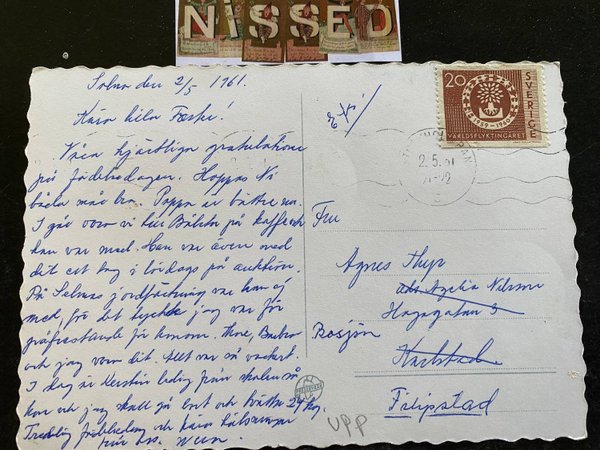 NISSED
Solna den 2/5 1961.
Kära lilla Faster!
Våra hjärtliga gratulationer
på födelsedagen. Hoppas Ni
båda må bra. Pappa är bättre nu.
I går voro vi hos på kaffe och
han var med. Han var även med
dit ett tag i lördags på auktion.
På Selmas jordfästning var han ej
med, för det tyckte jag var för
för honom. och
och jag voro dit. Allt var så vackert.
I dag är Kerstin ledig från skolan så
hon och jag skall gå bort och tvätta
Trevlig födelsedag och kära hälsningar
från oss
20
SVERIGE
1959-1960
VÄRLDSFLYKTINGÅRET
2.5.61
Fru
Agnes Thyr
Nilsson
Hagagatan 3
Rosjön
Karlstad
Filipstad
UPP